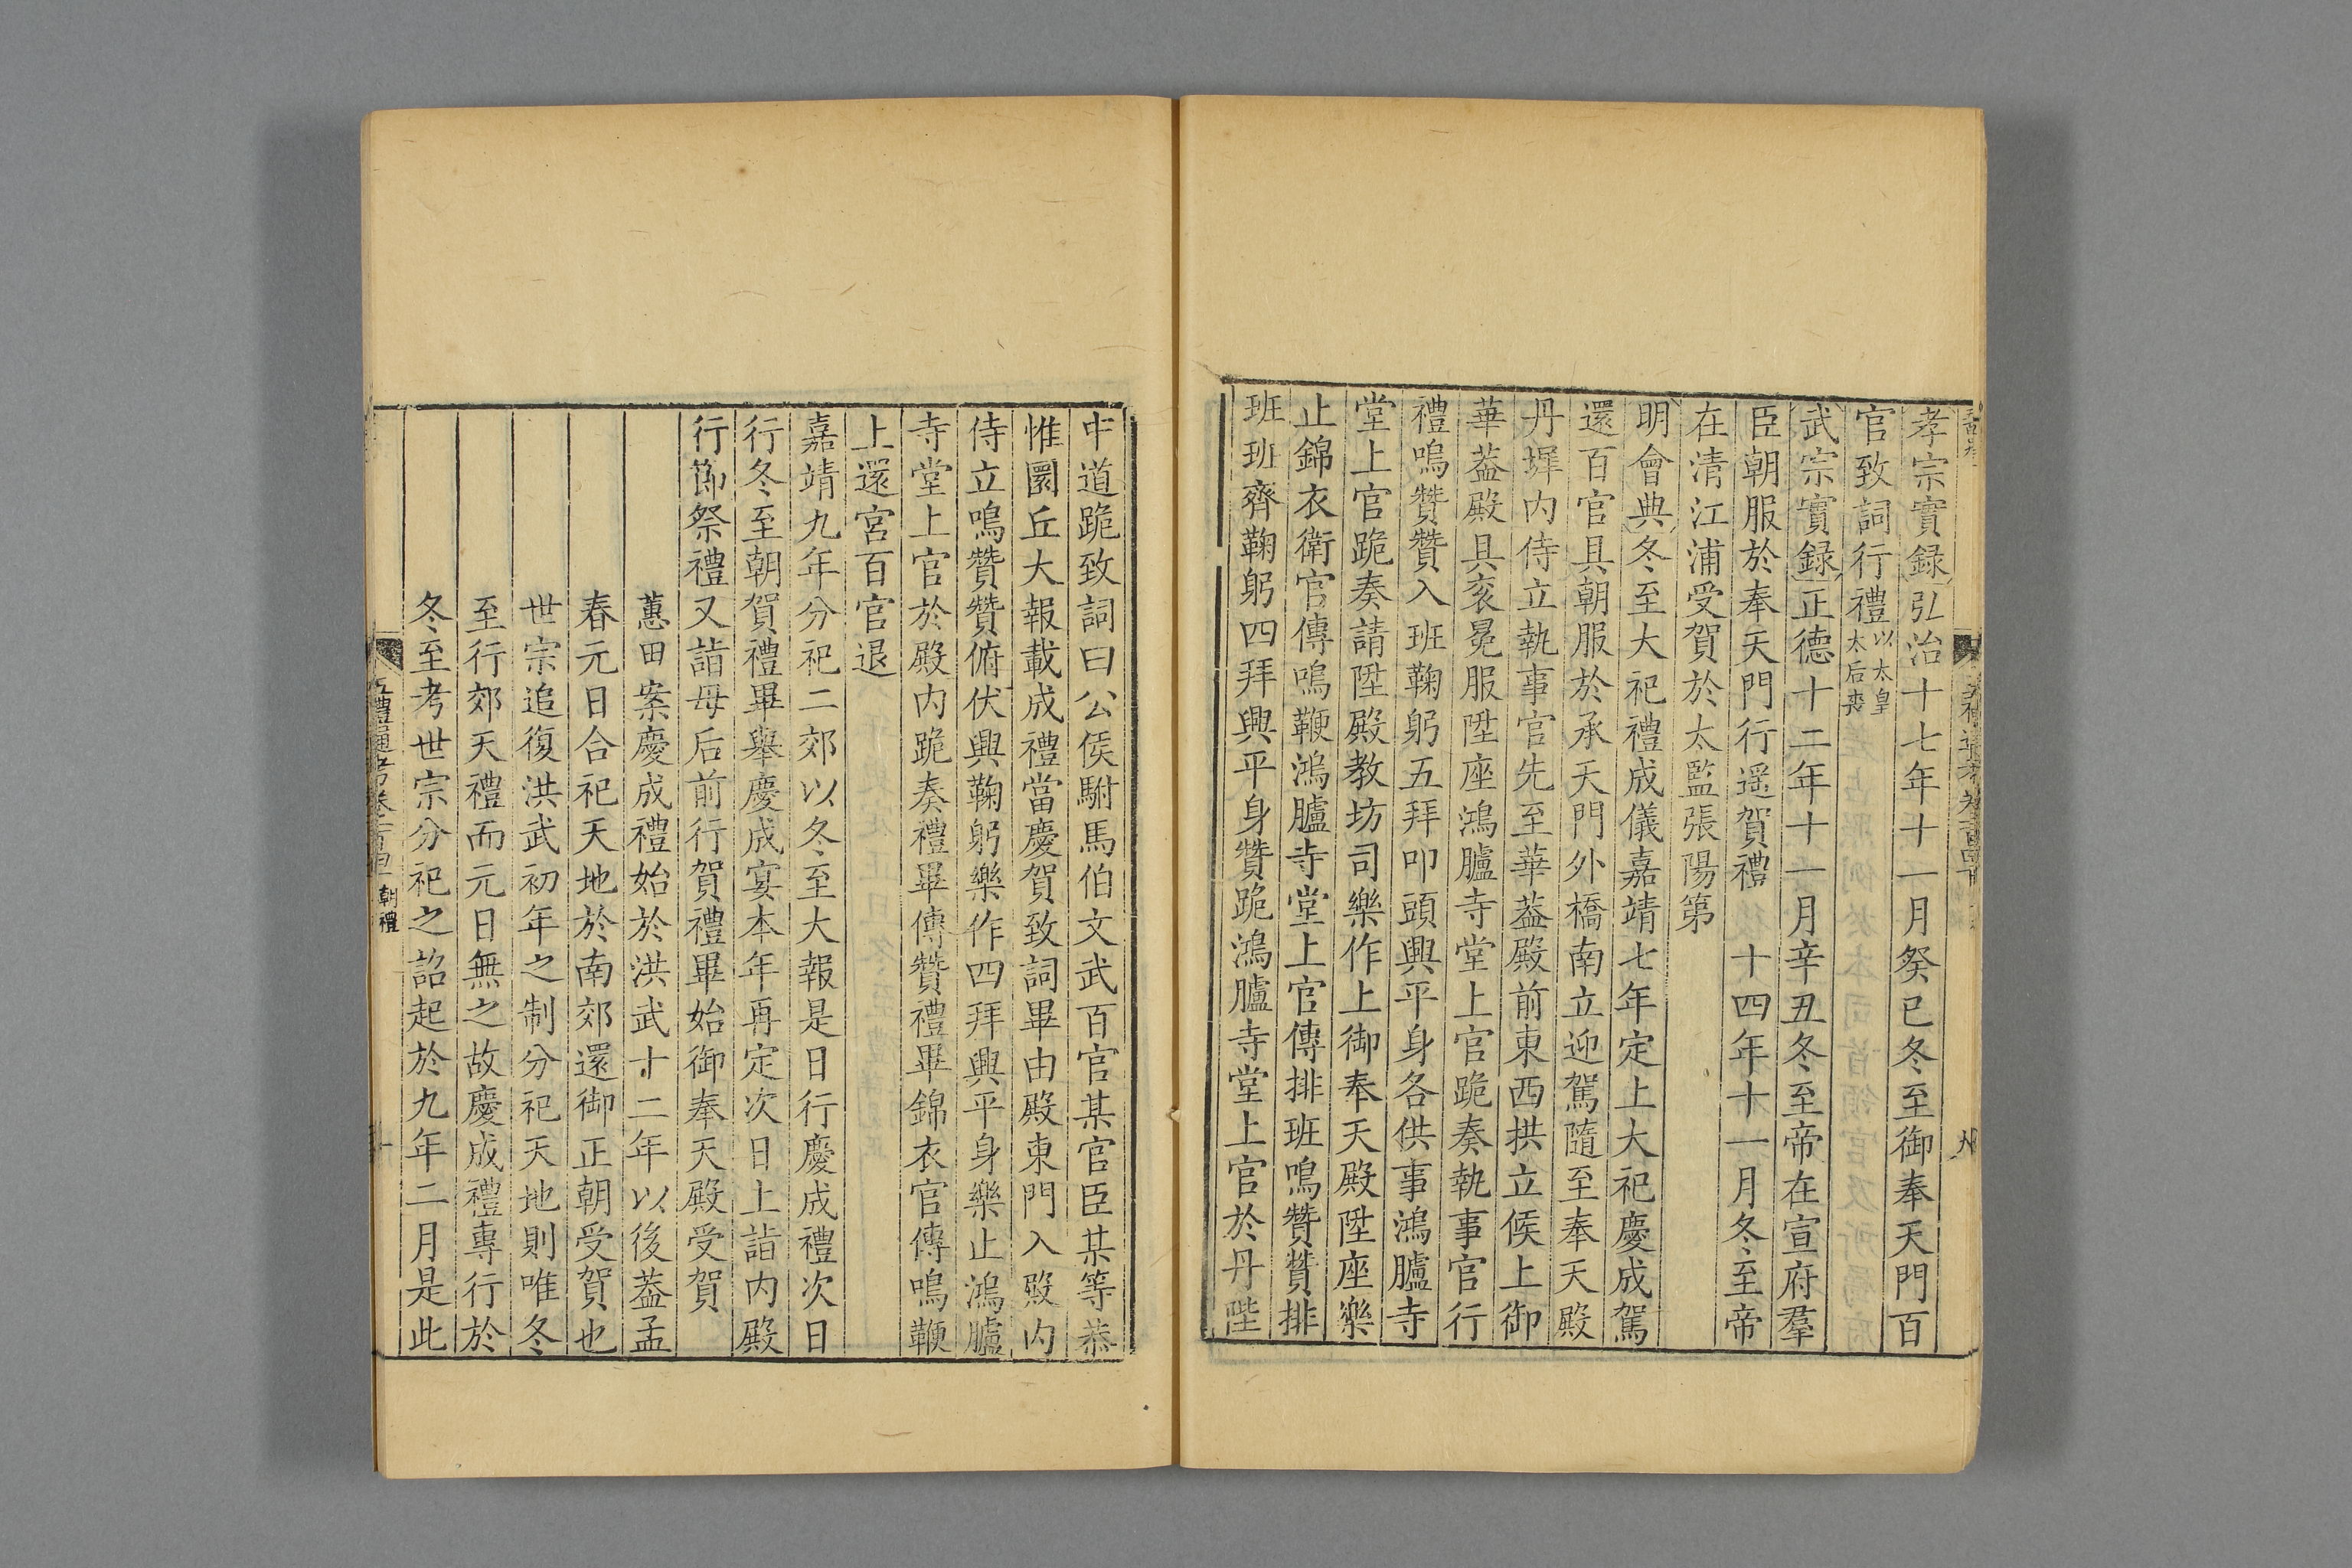 孝宗實録弘治十七年十一月癸巳冬至御奉天門百
官致詞行禮以太皇太后喪
武宗實録正德十二年十一月辛丑冬至帝在宣府羣
臣朝服於奉天門行遥賀禮 十四年十一月冬至帝
在清江浦受賀於太監張陽第
明會典冬至大祀禮成儀嘉靖七年定上大祀慶成駕
還百官具朝服於承天門外橋南立迎駕隨至奉天殿
丹墀内侍立執事官先至華葢殿前東西拱立候上御
華葢殿具衮冕服陞座鴻臚寺堂上官跪奏執事官行
禮鳴贊贊入班鞠躬五拜叩頭興平身各供事鴻臚寺
堂上官跪奏請陞殿教坊司樂作上御奉天殿陞座樂
止錦衣衛官傳鳴鞭鴻臚寺堂上官傳排班鳴贊贊排
班班齊鞠躬四拜興平身贊跪鴻臚寺堂上官於丹陛
中道跪致詞曰公侯駙馬伯文武百官某官臣某等恭
惟圜丘大報載成禮當慶賀致詞畢由殿東門入殿内
侍立鳴贊贊俯伏興鞠躬樂作四拜興平身樂止鴻臚
寺堂上官於殿内跪奏禮畢傳贊禮畢錦衣官傳鳴鞭
上還宮百官退
嘉靖九年分祀二郊以冬至大報是日行慶成禮次日
行冬至朝賀禮畢舉慶成宴本年再定次日上詣内殿
行節祭禮又詣母后前行賀禮畢始御奉天殿受賀
蕙田案慶成禮始於洪武十二年以後葢孟
春元日合祀天地於南郊還御正朝受賀也
世宗追復洪武初年之制分祀天地則唯冬
至行郊天禮而元日無之故慶成禮專行於
冬至考世宗分祀之詔起於九年二月是此
五禮通考卷一百四 朝禮